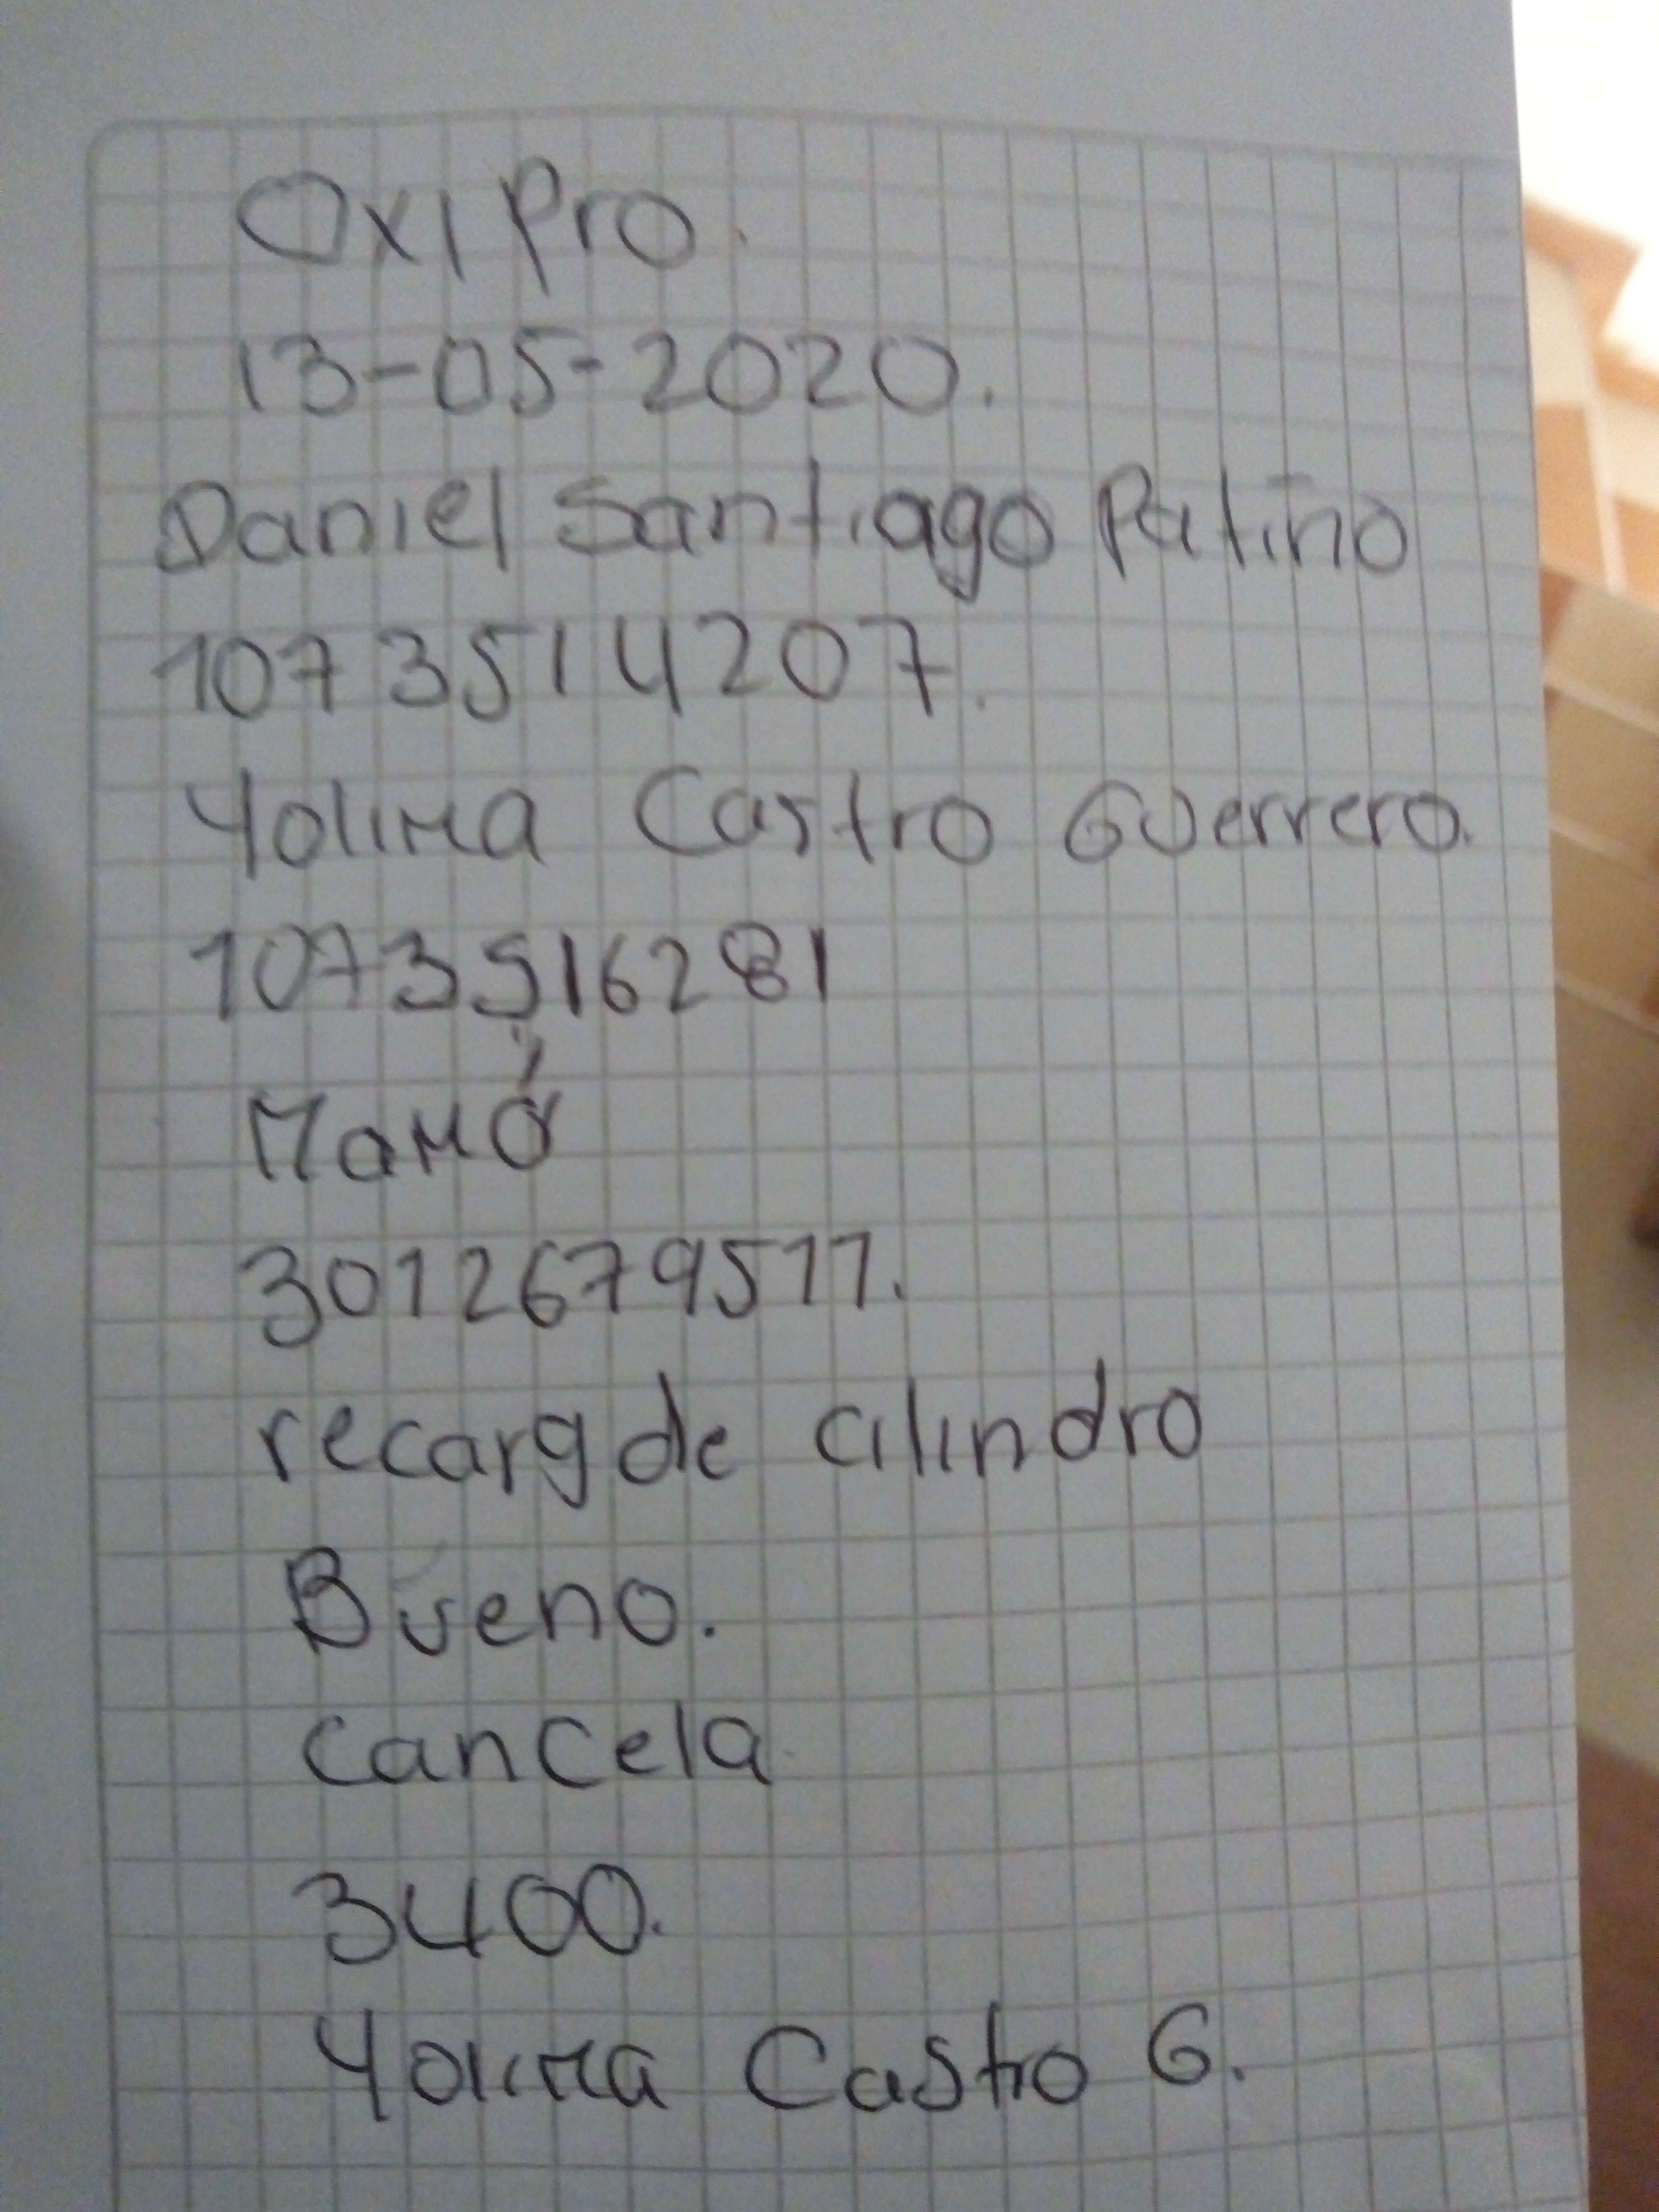 Oxi Pro.
13-05-2020.
Daniel Santiago Patiño
1073514207.
Yolima Castro Guerrero.
1073516281
Mamá
3012679511.
recarg de cilindro
Bueno.
Cancela
3400.
Yolima Castro G.